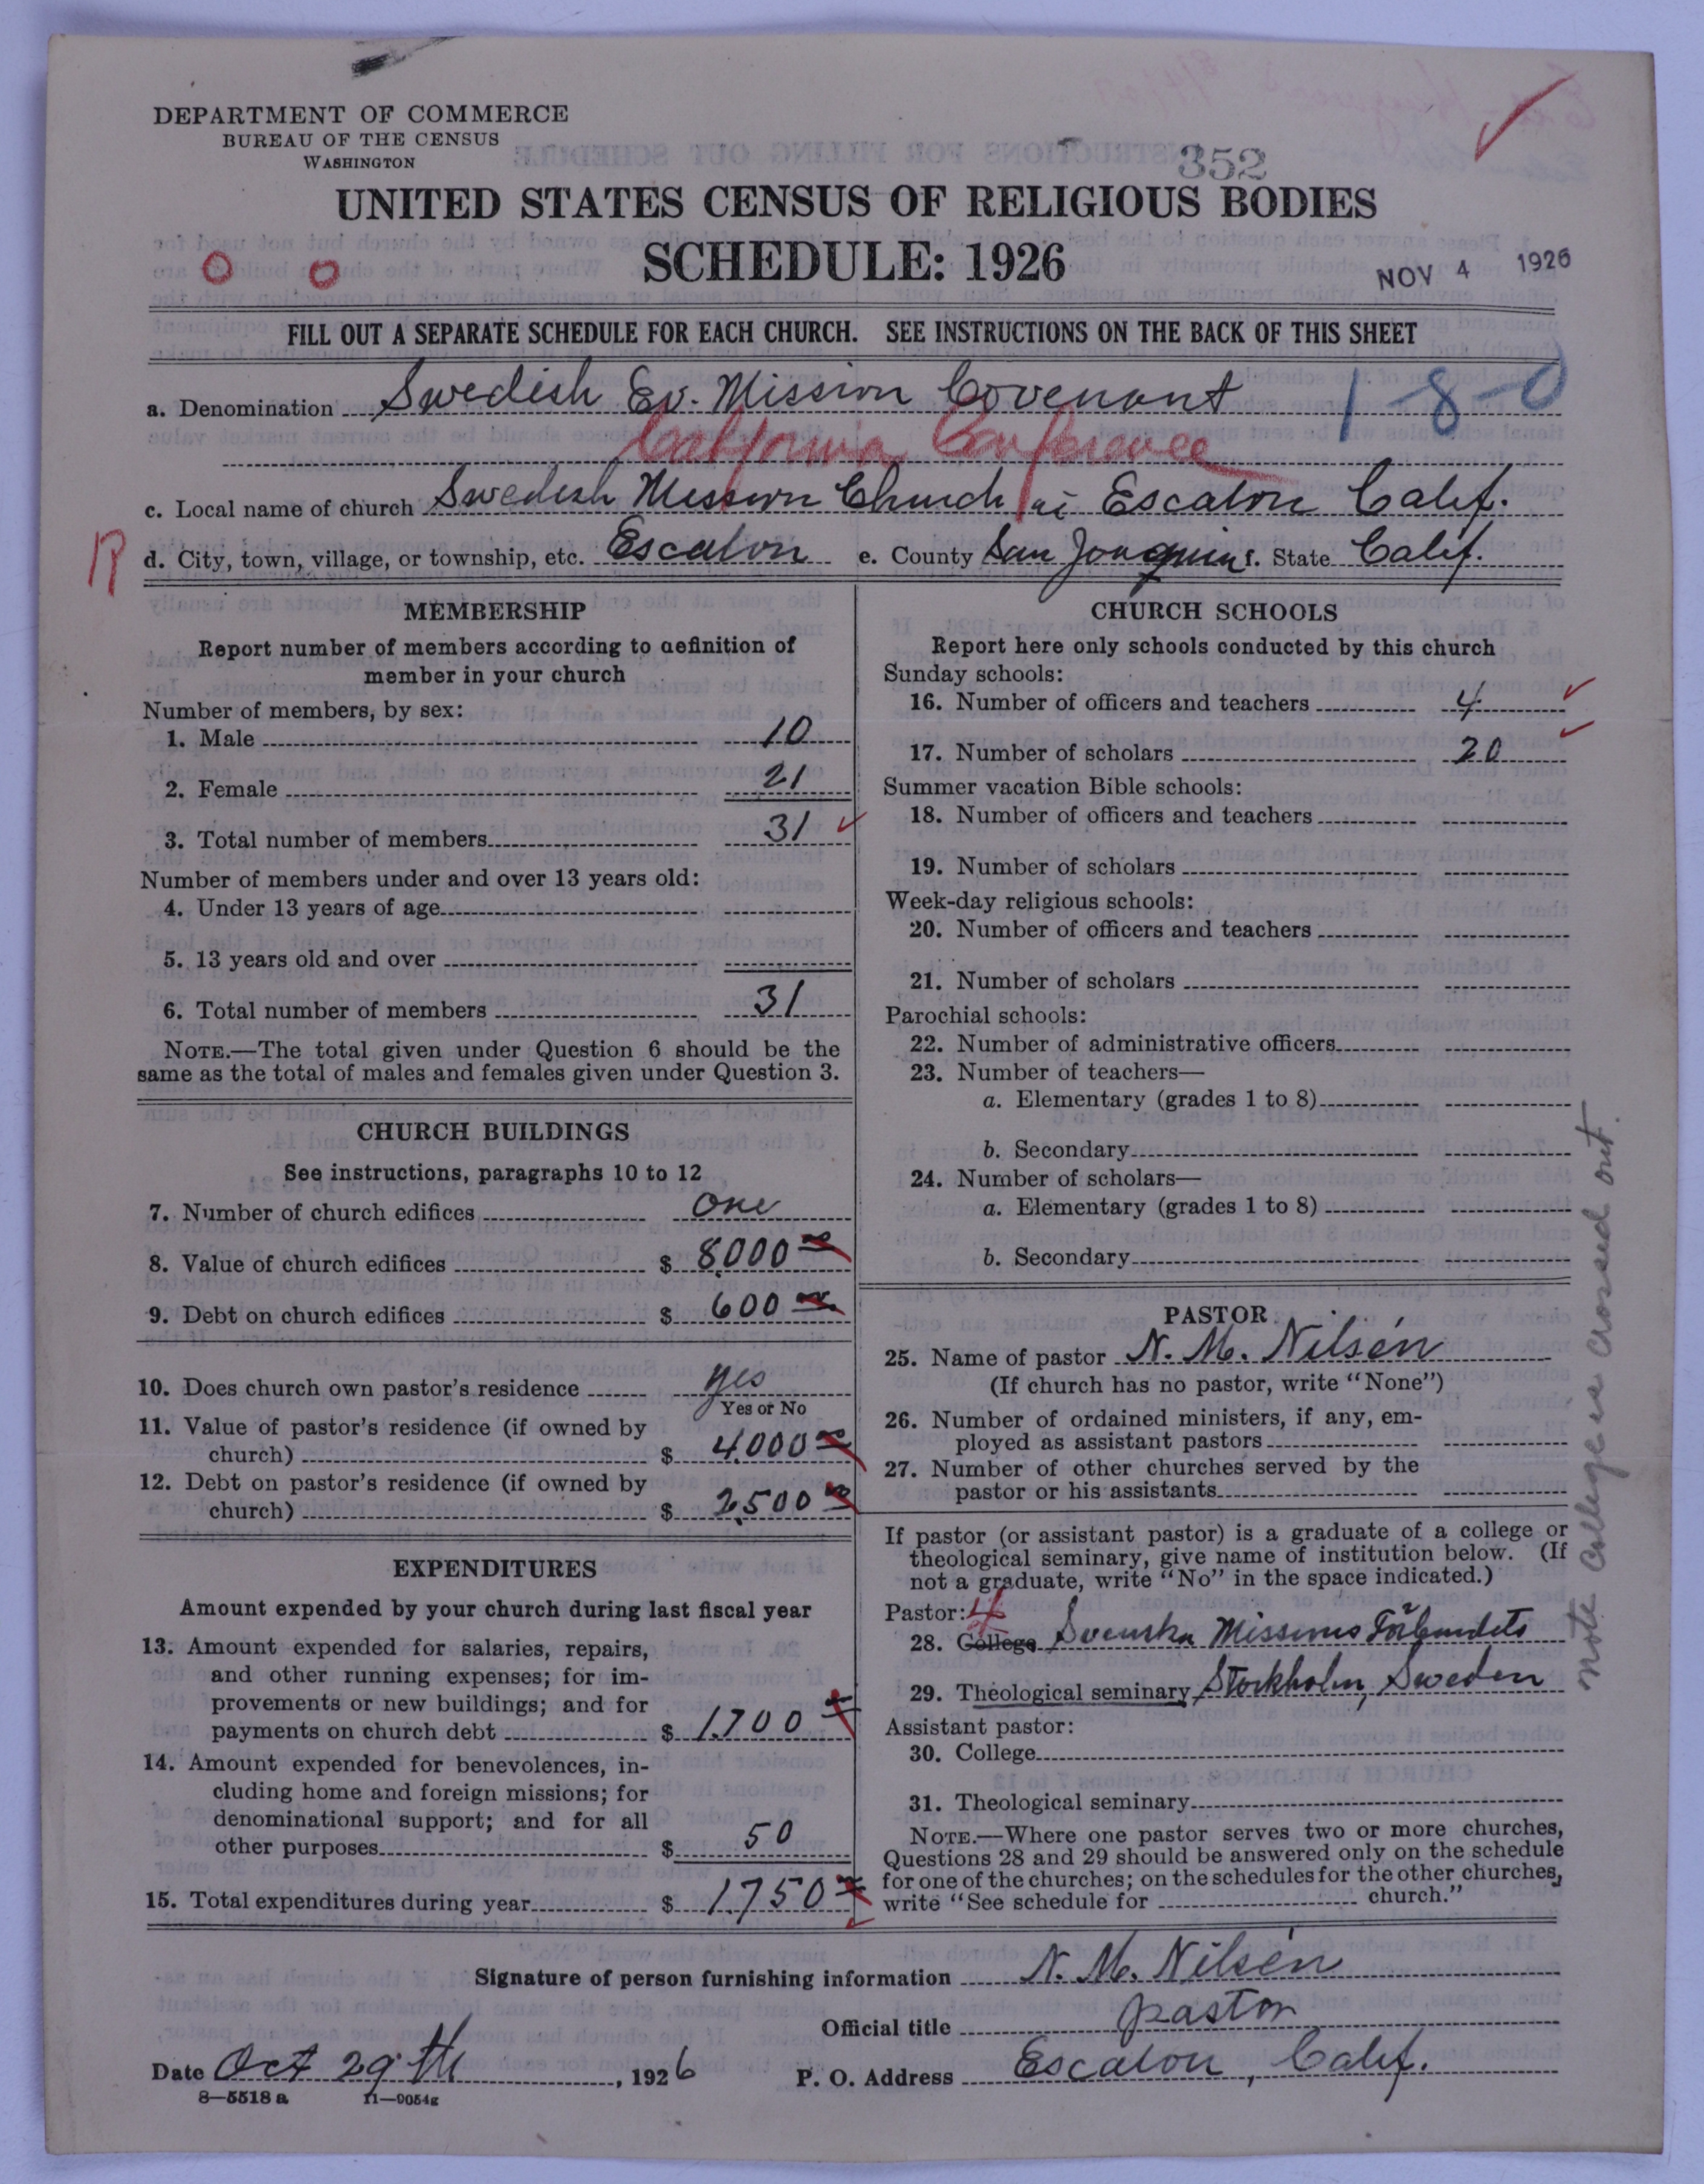 DEPARTMENT OF COMMERCE
BUREAU OF THE CENSUS
WASHINGTON
352
UNITED STATES CENSUS OF RELIGIOUS BODIES
SCHEDULE: 1926
NOV 4 1926
FILL OUT A SEPARATE SCHEDULE FOR EACH CHURCH. SEE INSTRUCTIONS ON THE BACK OF THIS SHEET
a. Denomination Swedish Ev. Mission Covenant 1-8-0
California Conference
c. Local name of church Swedish Mission Church in Escalon Calif.
R d. City, town, village, or township, etc. Escalon e. County San Joaquin f. State Calif.
MEMBERSHIP
Report number of members according to definition of
member in your church
Number of members, by sex:
1. Male 10
2. Female 21
3. Total number of members 31
Number of members under and over 13 years old:
4. Under 13 years of age
5. 13 years old and over
6. Total number of members 31
NOTE.—The total given under Question 6 should be the
same as the total of males and females given under Question 3.
CHURCH BUILDINGS
See instructions, paragraphs 10 to 12
7. Number of church edifices one
8. Value of church edifices $ 8,000 00
9. Debt on church edifices $ 600 00
10. Does church own pastor's residence yes
Yes or No
11. Value of pastor's residence (if owned by
church) $ 4,000 00
12. Debt on pastor's residence (if owned by
church) $ 2,500 00
EXPENDITURES
Amount expended by your church during last fiscal year
13. Amount expended for salaries, repairs,
and other running expenses; for im-
provements or new buildings; and for
payments on church debt $ 1,700
14. Amount expended for benevolences, in-
cluding home and foreign missions; for
denominational support; and for all
other purposes $ 50
15. Total expenditures during year $ 1,750
CHURCH SCHOOLS
Report here only schools conducted by this church
Sunday schools:
16. Number of officers and teachers 4
17. Number of scholars 20
Summer vacation Bible schools:
18. Number of officers and teachers
19. Number of scholars
Week-day religious schools:
20. Number of officers and teachers
21. Number of scholars
Parochial schools:
22. Number of administrative officers
23. Number of teachers—
a. Elementary (grades 1 to 8)
b. Secondary
24. Number of scholars—
a. Elementary (grades 1 to 8)
b. Secondary
PASTOR
25. Name of pastor N. M. Nilsén
(If church has no pastor, write "None")
26. Number of ordained ministers, if any, em-
ployed as assistant pastors
27. Number of other churches served by the
pastor or his assistants
If pastor (or assistant pastor) is a graduate of a college or
theological seminary, give name of institution below. (If
not a graduate, write "No" in the space indicated.)
Pastor: 4
28. College Svenska Missions Förbundets
29. Theological seminary Stockholm, Sweden
Assistant pastor:
30. College
31. Theological seminary
NOTE.—Where one pastor serves two or more churches,
Questions 28 and 29 should be answered only on the schedule
for one of the churches; on the schedules for the other churches,
write "See schedule for church."
note college is crossed out.
Signature of person furnishing information N. M. Nilsén
Official title pastor
Date Oct 29th, 1926 P. O. Address Escalon, Calif.
8—5518 a 11—9054g